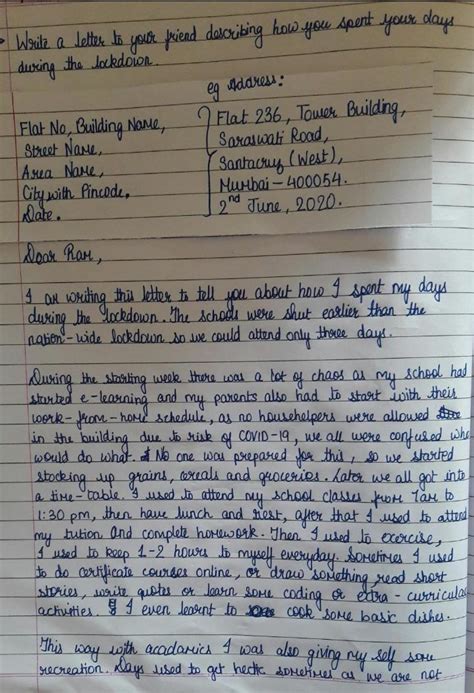 Write a letter to your friend describing how you spent your days
during the lockdown.
eg Address:
Flat No, Building Name,
Street Name,
Area Name,
City with Pincode,
Date.
Flat 236, Tower Building,
Saraswati Road,
Santacruz (West),
Mumbai - 400054.
2nd June, 2020.
Dear Ram,
I am writing this letter to tell you about how I spent my days
during the lockdown. The schools were shut earlier than the
nation-wide lockdown so we could attend only three days.
During the starting week there was a lot of chaos as my school had
started e-learning and my parents also had to start with their
work-from-home schedule, as no househelpers were allowed
in the building due to risk of COVID-19, we all were confused who
would do what. No one was prepared for this, so we started
stocking up grains, cereals and groceries. Later we all got into
a time-table. I used to attend my school classes from 7am to
1:30 pm, then have lunch and rest, after that I used to attend
my tution and complete homework. Then I used to exercise,
I used to keep 1-2 hours to myself everyday. Sometimes I used
to do certificate courses online, or draw something, read short
stories, write quotes or learn some coding or extra-curricular
activities. I even learnt to cook some basic dishes.
This way with acadamics I was also giving my self some
recreation. Days used to get hectic sometimes as we are not